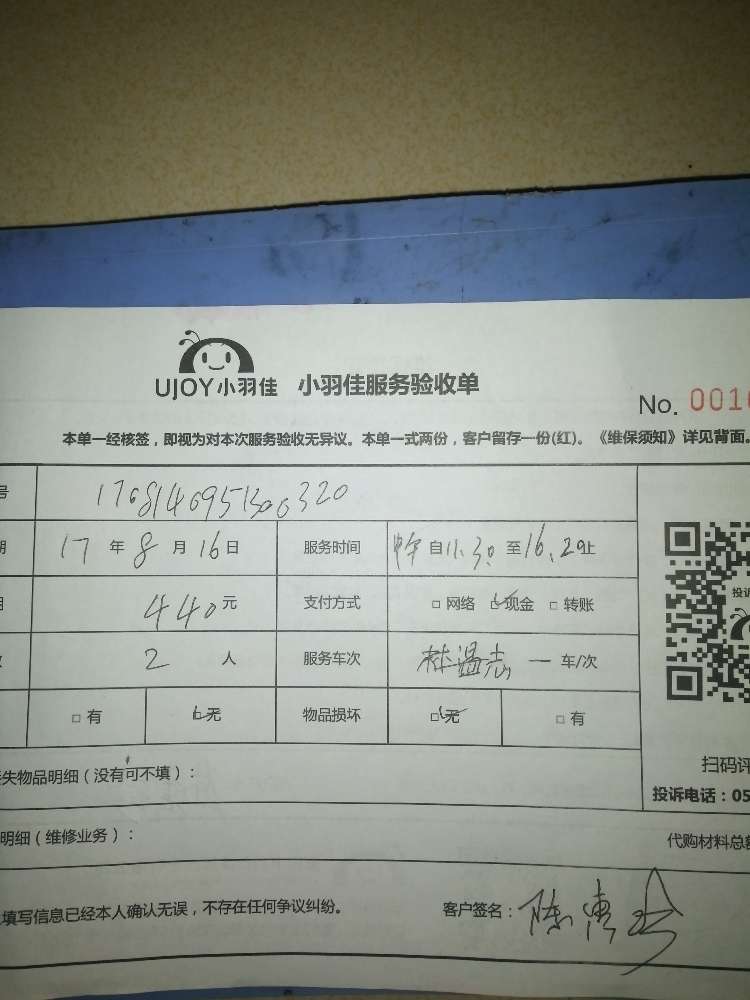 UJOY小羽佳 小羽佳服务验收单
No. 0010
本单一经核签，即视为对本次服务验收无异议。本单一式两份，客户留存一份(红)。《维保须知》详见背面。
号
期 17 年 8 月 16 日 服务时间 自 11.30 至 16.20 止
440 元 支付方式 □ 网络 ☑ 现金 □ 转账
2 人 服务车次 林温志 一 车/次
□ 有 ☑ 无 物品损坏 ☑ 无 □ 有
投诉
失物品明细（没有可不填）：
扫码评
投诉电话：05
明细（维修业务）：
代购材料总额
填写信息已经本人确认无误，不存在任何争议纠纷。
客户签名：陈